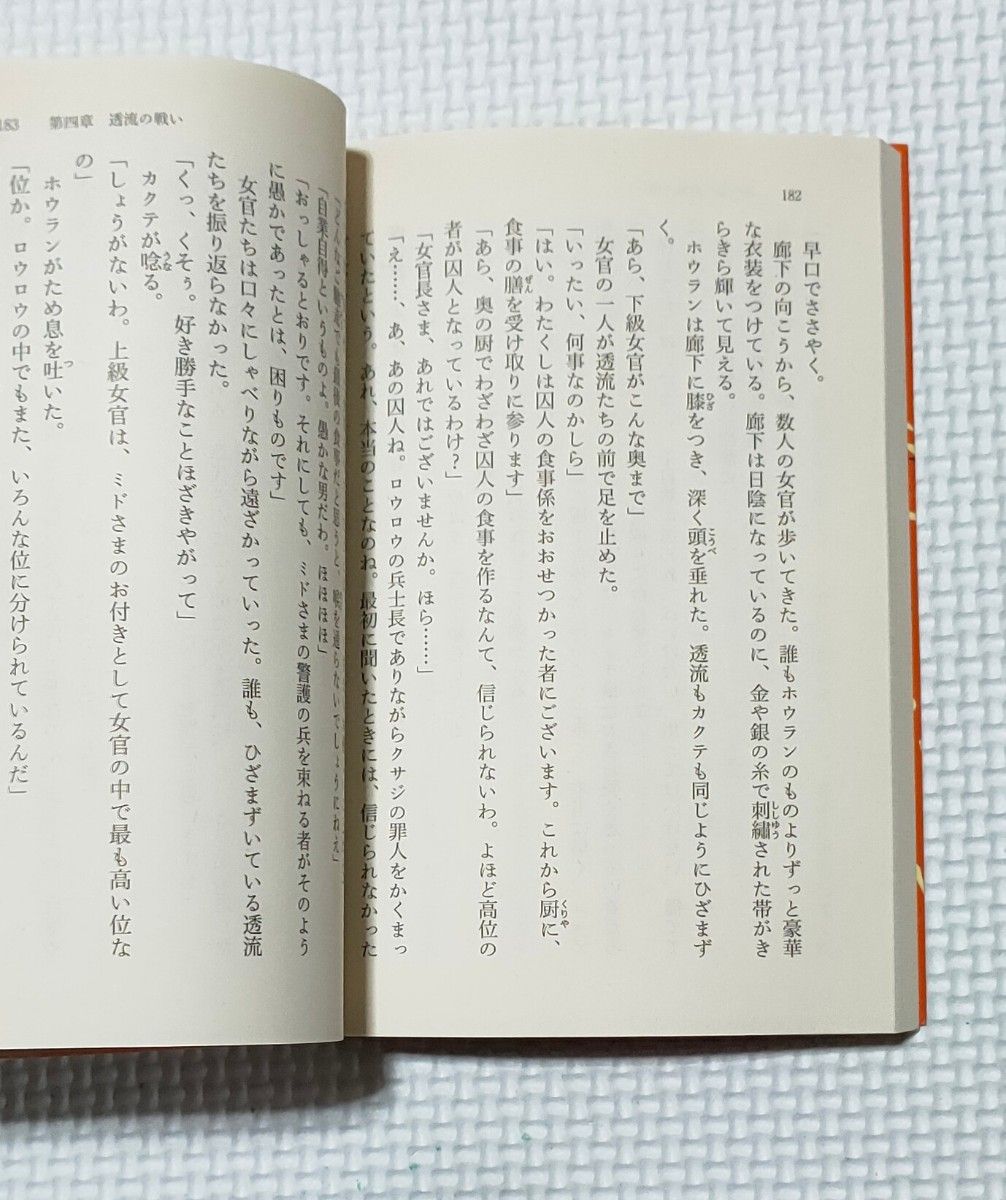 182
早口でささやく。
廊下の向こうから、数人の女官が歩いてきた。誰もホウランのものよりずっと豪華
な衣装をつけている。廊下は日陰になっているのに、金や銀の糸で刺繍された帯がき
らきら輝いて見える。
ホウランは廊下に膝をつき、深く頭を垂れた。透流もカクテも同じようにひざまず
く。
「あら、下級女官がこんな奥まで」
女官の一人が透流たちの前で足を止めた。
「いったい、何事なのかしら」
「はい。わたくしは囚人の食事係をおおせつかった者にございます。これから厨に、
食事の膳を受け取りに参ります」
「あら、奥の厨でわざわざ囚人の食事を作るなんて、信じられないわ。よほど高位の
者が囚人となっているわけ?」
「女官長さま、あれではございませんか。ほら……」
「え……、あ、あの囚人ね。ロウロウの兵士長でありながらクサジの罪人をかくまっ
ていたという。あれ、本当のことなのね。最初に聞いたときには、信じられなかった
183 第四章 透流の戦い
「自業自得というものよ。愚かな男だわ。ほほほほ」
「おっしゃるとおりです。それにしても、ミドさまの警護の兵を束ねる者がそのよう
に愚かであったとは、困りものです」
女官たちは口々にしゃべりながら遠ざかっていった。誰も、ひざまずいている透流
たちを振り返らなかった。
「くっ、くそぅ。好き勝手なことほざきやがって」
カクテが唸る。
「しょうがないわ。上級女官は、ミドさまのお付きとして女官の中で最も高い位な
の」
ホウランがため息を吐いた。
「位か。ロウロウの中でもまた、いろんな位に分けられているんだ」